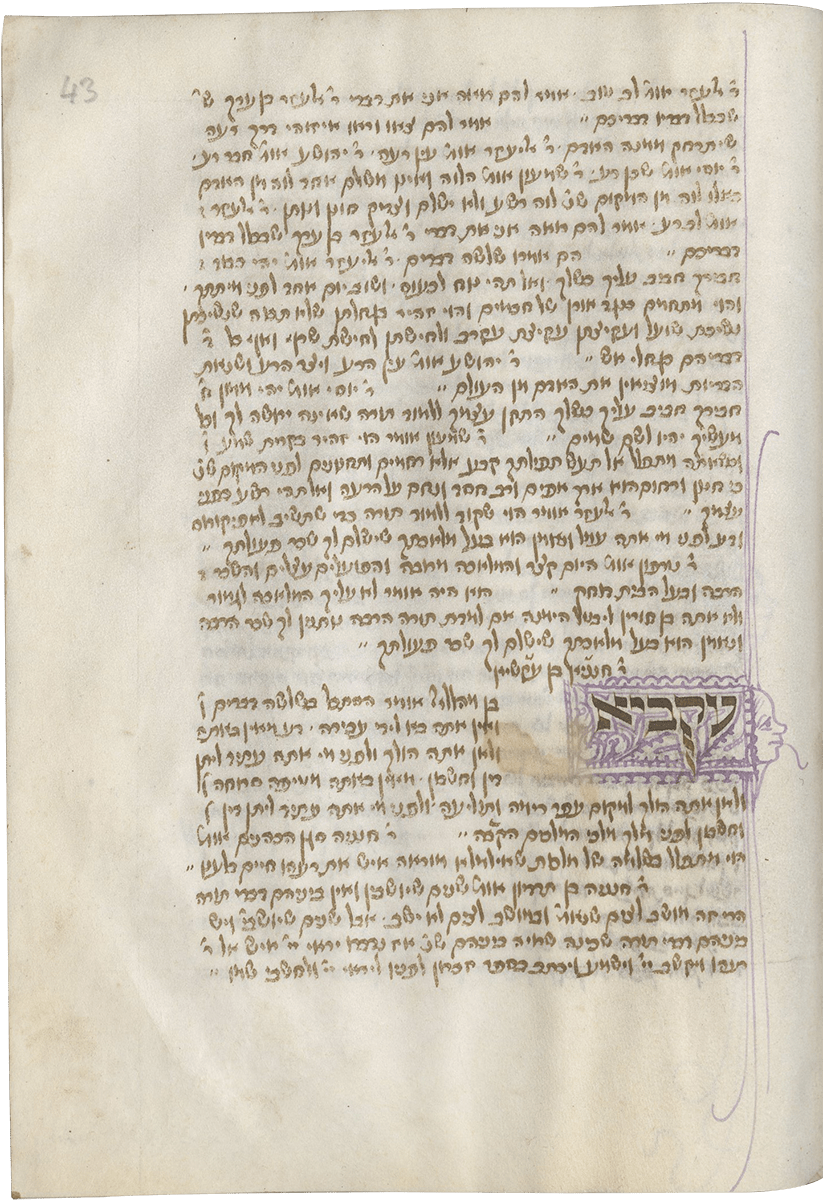 43
ר' אלעזר אומ' לב טוב . אמר להם רואה אני את דברי ר' אלעזר בן ערך ש'
שבכלל דבריו דבריכם " אמר להם צאו וראו איזוהי דרך רעה
שיתרחק ממנה האדם . ר' אליעזר אומ' עין רעה . ר' יהושע אומ' חבר רע .
ר' יוסי אומ' שכן רע . ר' שמעון אומ' הלוה ואינו משלם אחד לוה מן האדם
כאלו לוה מן המקום שנ' לוה רשע ולא ישלם וצדיק חונן ונותן . ר' אלעזר
אומ' לב רע . אמר להם רואה אני את דברי ר' אלעזר בן ערך שבכלל דבריו
דבריכם " הם אמרו שלשה דברים . ר' אליעזר אומ' יהי כבוד
חבירך חביב עליך כשלך . ואל תהי נוח לכעוס . ושוב יום אחד לפני מיתתך .
והוי מתחמם כנגד אורן של חכמים והוי זהיר בגחלתן שלא תכוה שנשיכתן
נשיכת שועל ועקיצתן עקיצת עקרב ולחישתן לחישת שרף וכל
דבריהם כגחלי אש " ר' יהושע אומ' עין הרע ויצר הרע ושנאת
הבריות מוציאין את האדם מן העולם " ר' יוסי אומ' יהי ממון
חבירך חביב עליך כשלך התקן עצמך ללמוד תורה שאינה ירושה לך וכל
מעשיך יהיו לשם שמים " ר' שמעון אומר הוי זהיר בקרית שמע
וכשאתה מתפלל אל תעש תפילתך קבע אלא רחמים ותחנונים לפני המקום שנ'
כי חנון ורחום הוא ארך אפים ורב חסד ונחם על הרעה ואל תהי רשע בפני
עצמך " ר' אלעזר אומר הוי שקוד ללמוד תורה כדי שתשיב לאפיקורוס
ודע לפני מי אתה עמל ונאמן הוא בעל מלאכתך שישלם לך שכר פעולתך "
ר' טרפון אומ' היום קצר והמלאכה מרובה והפועלים עצלים והשכר
הרבה ובעל הבית דוחק " הוא היה אומר לא עליך המלאכה לגמור
ולא אתה בן חורין ליבטל הימנה אם למדת תורה הרבה נותנין לך שכר הרבה
ונאמן הוא בעל מלאכתך שישלם לך שכר פעולתך "
ר' חנניא בן עקשיא
עקביא
בן מהללאל אומר הסתכל בשלשה דברים
ואין אתה בא לידי עבירה . דע מאין באתה
ולאן אתה הולך ולפני מי אתה עתיד ליתן
דין וחשבון . מאין באתה מטיפה סרוחה
ולאן אתה הולך למקום עפר רימה ותוליעה . ולפני מי אתה עתיד ליתן דין
וחשבון לפני מלך מלכי המלכים הקב"ה " ר' חנניה סגן הכהנים אומ'
הוי מתפלל בשלומה של מלכות שאילמלא מוראה איש את רעהו חיים בלענו "
ר' חנניה בן תרדיון אומ' שנים שיושבין ואין ביניהם דברי תורה
הרי זה מושב לצים שנאמ' ובמושב לצים לא ישב . אבל שנים שיושבי' ויש
ביניהם דברי תורה שכינה שרויה ביניהם שנ' אז נדברו יראי יי' איש אל ר'
רעהו ויקשב יי' וישמע ויכתב בספר זכרון לפניו ליראי יי' ולחשבי שמו "